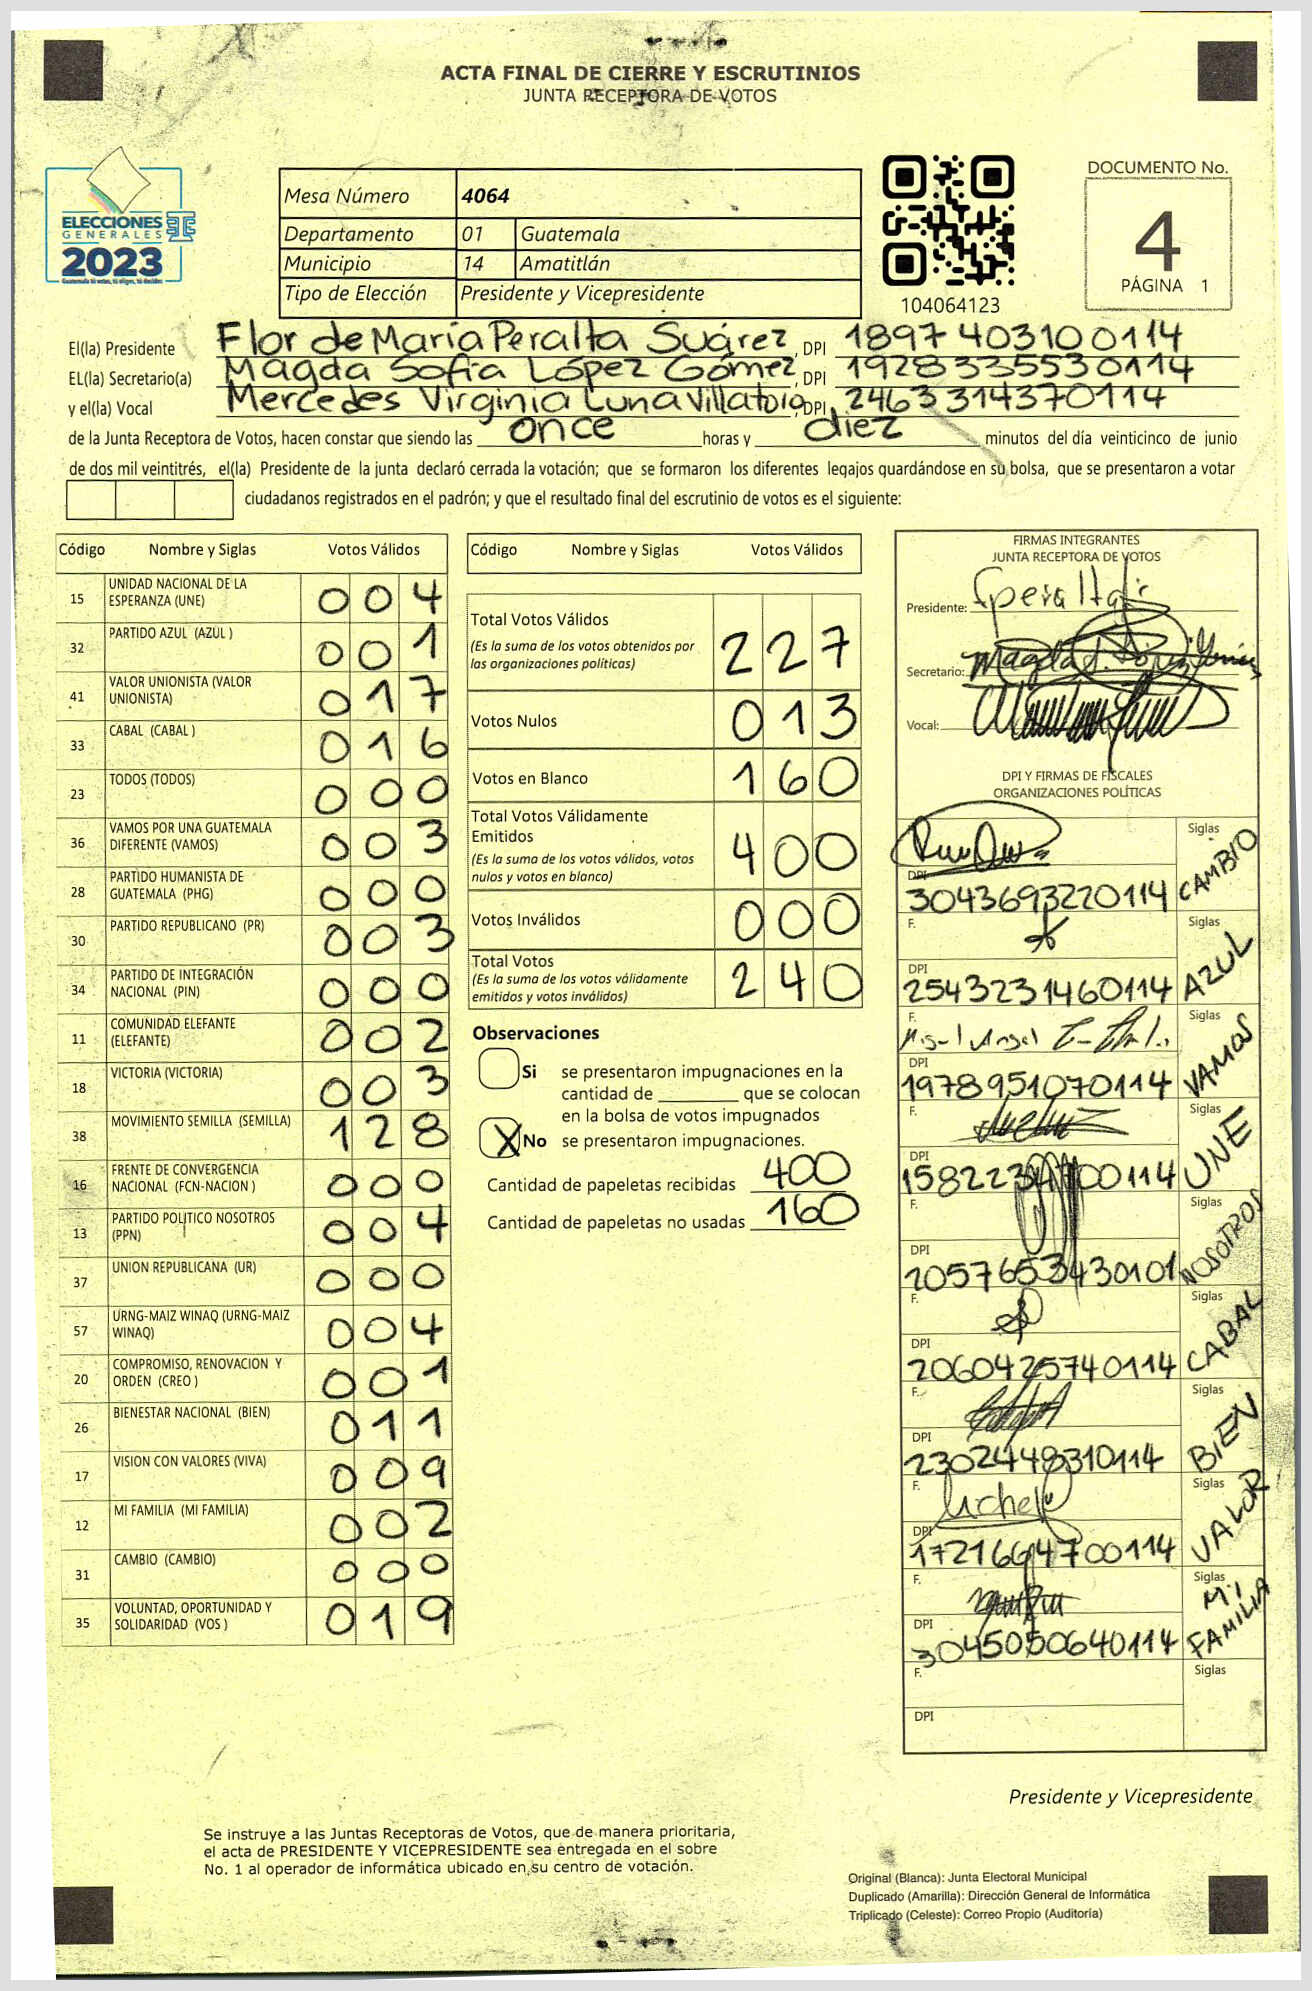 ACTA FINAL DE CIERRE Y ESCRUTINIOS
JUNTA RECEPTORA DE VOTOS
ELECCIONES
GENERALES
2023
Mesa Número 4064
Departamento 01 Guatemala
Municipio 14 Amatitlán
Tipo de Elección Presidente y Vicepresidente
104064123
DOCUMENTO No.
4
PÁGINA 1
El(la) Presidente Flor de María Peralta Suárez, DPI 1897 403100114
EL(la) Secretario(a) Magda Sofía López Gómez, DPI 1928335530114
y el(la) Vocal Mercedes Virginia Luna Villatoro, DPI 2463314370114
de la Junta Receptora de Votos, hacen constar que siendo las once horas y diez minutos del día veinticinco de junio
de dos mil veintitrés, el(la) Presidente de la junta declaró cerrada la votación; que se formaron los diferentes legajos guardándose en su bolsa, que se presentaron a votar
ciudadanos registrados en el padrón; y que el resultado final del escrutinio de votos es el siguiente:
Código Nombre y Siglas Votos Válidos
15 UNIDAD NACIONAL DE LA ESPERANZA (UNE) 004
32 PARTIDO AZUL (AZUL ) 001
41 VALOR UNIONISTA (VALOR UNIONISTA) 017
33 CABAL (CABAL ) 016
23 TODOS (TODOS) 000
36 VAMOS POR UNA GUATEMALA DIFERENTE (VAMOS) 003
28 PARTIDO HUMANISTA DE GUATEMALA (PHG) 000
30 PARTIDO REPUBLICANO (PR) 003
34 PARTIDO DE INTEGRACIÓN NACIONAL (PIN) 000
11 COMUNIDAD ELEFANTE (ELEFANTE) 002
18 VICTORIA (VICTORIA) 003
38 MOVIMIENTO SEMILLA (SEMILLA) 128
16 FRENTE DE CONVERGENCIA NACIONAL (FCN-NACION ) 000
13 PARTIDO POLITICO NOSOTROS (PPN) 004
37 UNION REPUBLICANA (UR) 000
57 URNG-MAIZ WINAQ (URNG-MAIZ WINAQ) 004
20 COMPROMISO, RENOVACION Y ORDEN (CREO ) 001
26 BIENESTAR NACIONAL (BIEN) 011
17 VISION CON VALORES (VIVA) 009
12 MI FAMILIA (MI FAMILIA) 002
31 CAMBIO (CAMBIO) 000
35 VOLUNTAD, OPORTUNIDAD Y SOLIDARIDAD (VOS ) 019
Código Nombre y Siglas Votos Válidos
Total Votos Válidos 227
(Es la suma de los votos obtenidos por
las organizaciones políticas)
Votos Nulos 013
Votos en Blanco 160
Total Votos Válidamente
Emitidos 400
(Es la suma de los votos válidos, votos
nulos y votos en blanco)
Votos Inválidos 000
Total Votos 240
(Es la suma de los votos válidamente
emitidos y votos inválidos)
Observaciones
Si se presentaron impugnaciones en la
cantidad de ________ que se colocan
en la bolsa de votos impugnados
X No se presentaron impugnaciones.
Cantidad de papeletas recibidas 400
Cantidad de papeletas no usadas 160
FIRMAS INTEGRANTES
JUNTA RECEPTORA DE VOTOS
Presidente:
Secretario:
Vocal:
DPI Y FIRMAS DE FISCALES
ORGANIZACIONES POLÍTICAS
Siglas CAMBIO
DPI 3043693220114
F. Siglas AZUL
DPI 2543231460114
F. Siglas VAMOS
DPI 1978951070114
F. Siglas UNE
DPI
F. Siglas NOSOTROS
DPI 2057653430101
F. Siglas CABAL
DPI 2060425740114
F. Siglas BIEN
DPI 2302448310114
F. Siglas VALOR
DPI 1721664700114
F. Siglas MI FAMILIA
DPI 3045050640114
F. Siglas
DPI
Presidente y Vicepresidente
Se instruye a las Juntas Receptoras de Votos, que de manera prioritaria,
el acta de PRESIDENTE Y VICEPRESIDENTE sea entregada en el sobre
No. 1 al operador de informática ubicado en su centro de votación.
Original (Blanca): Junta Electoral Municipal
Duplicado (Amarilla): Dirección General de Informática
Triplicado (Celeste): Correo Propio (Auditoría)